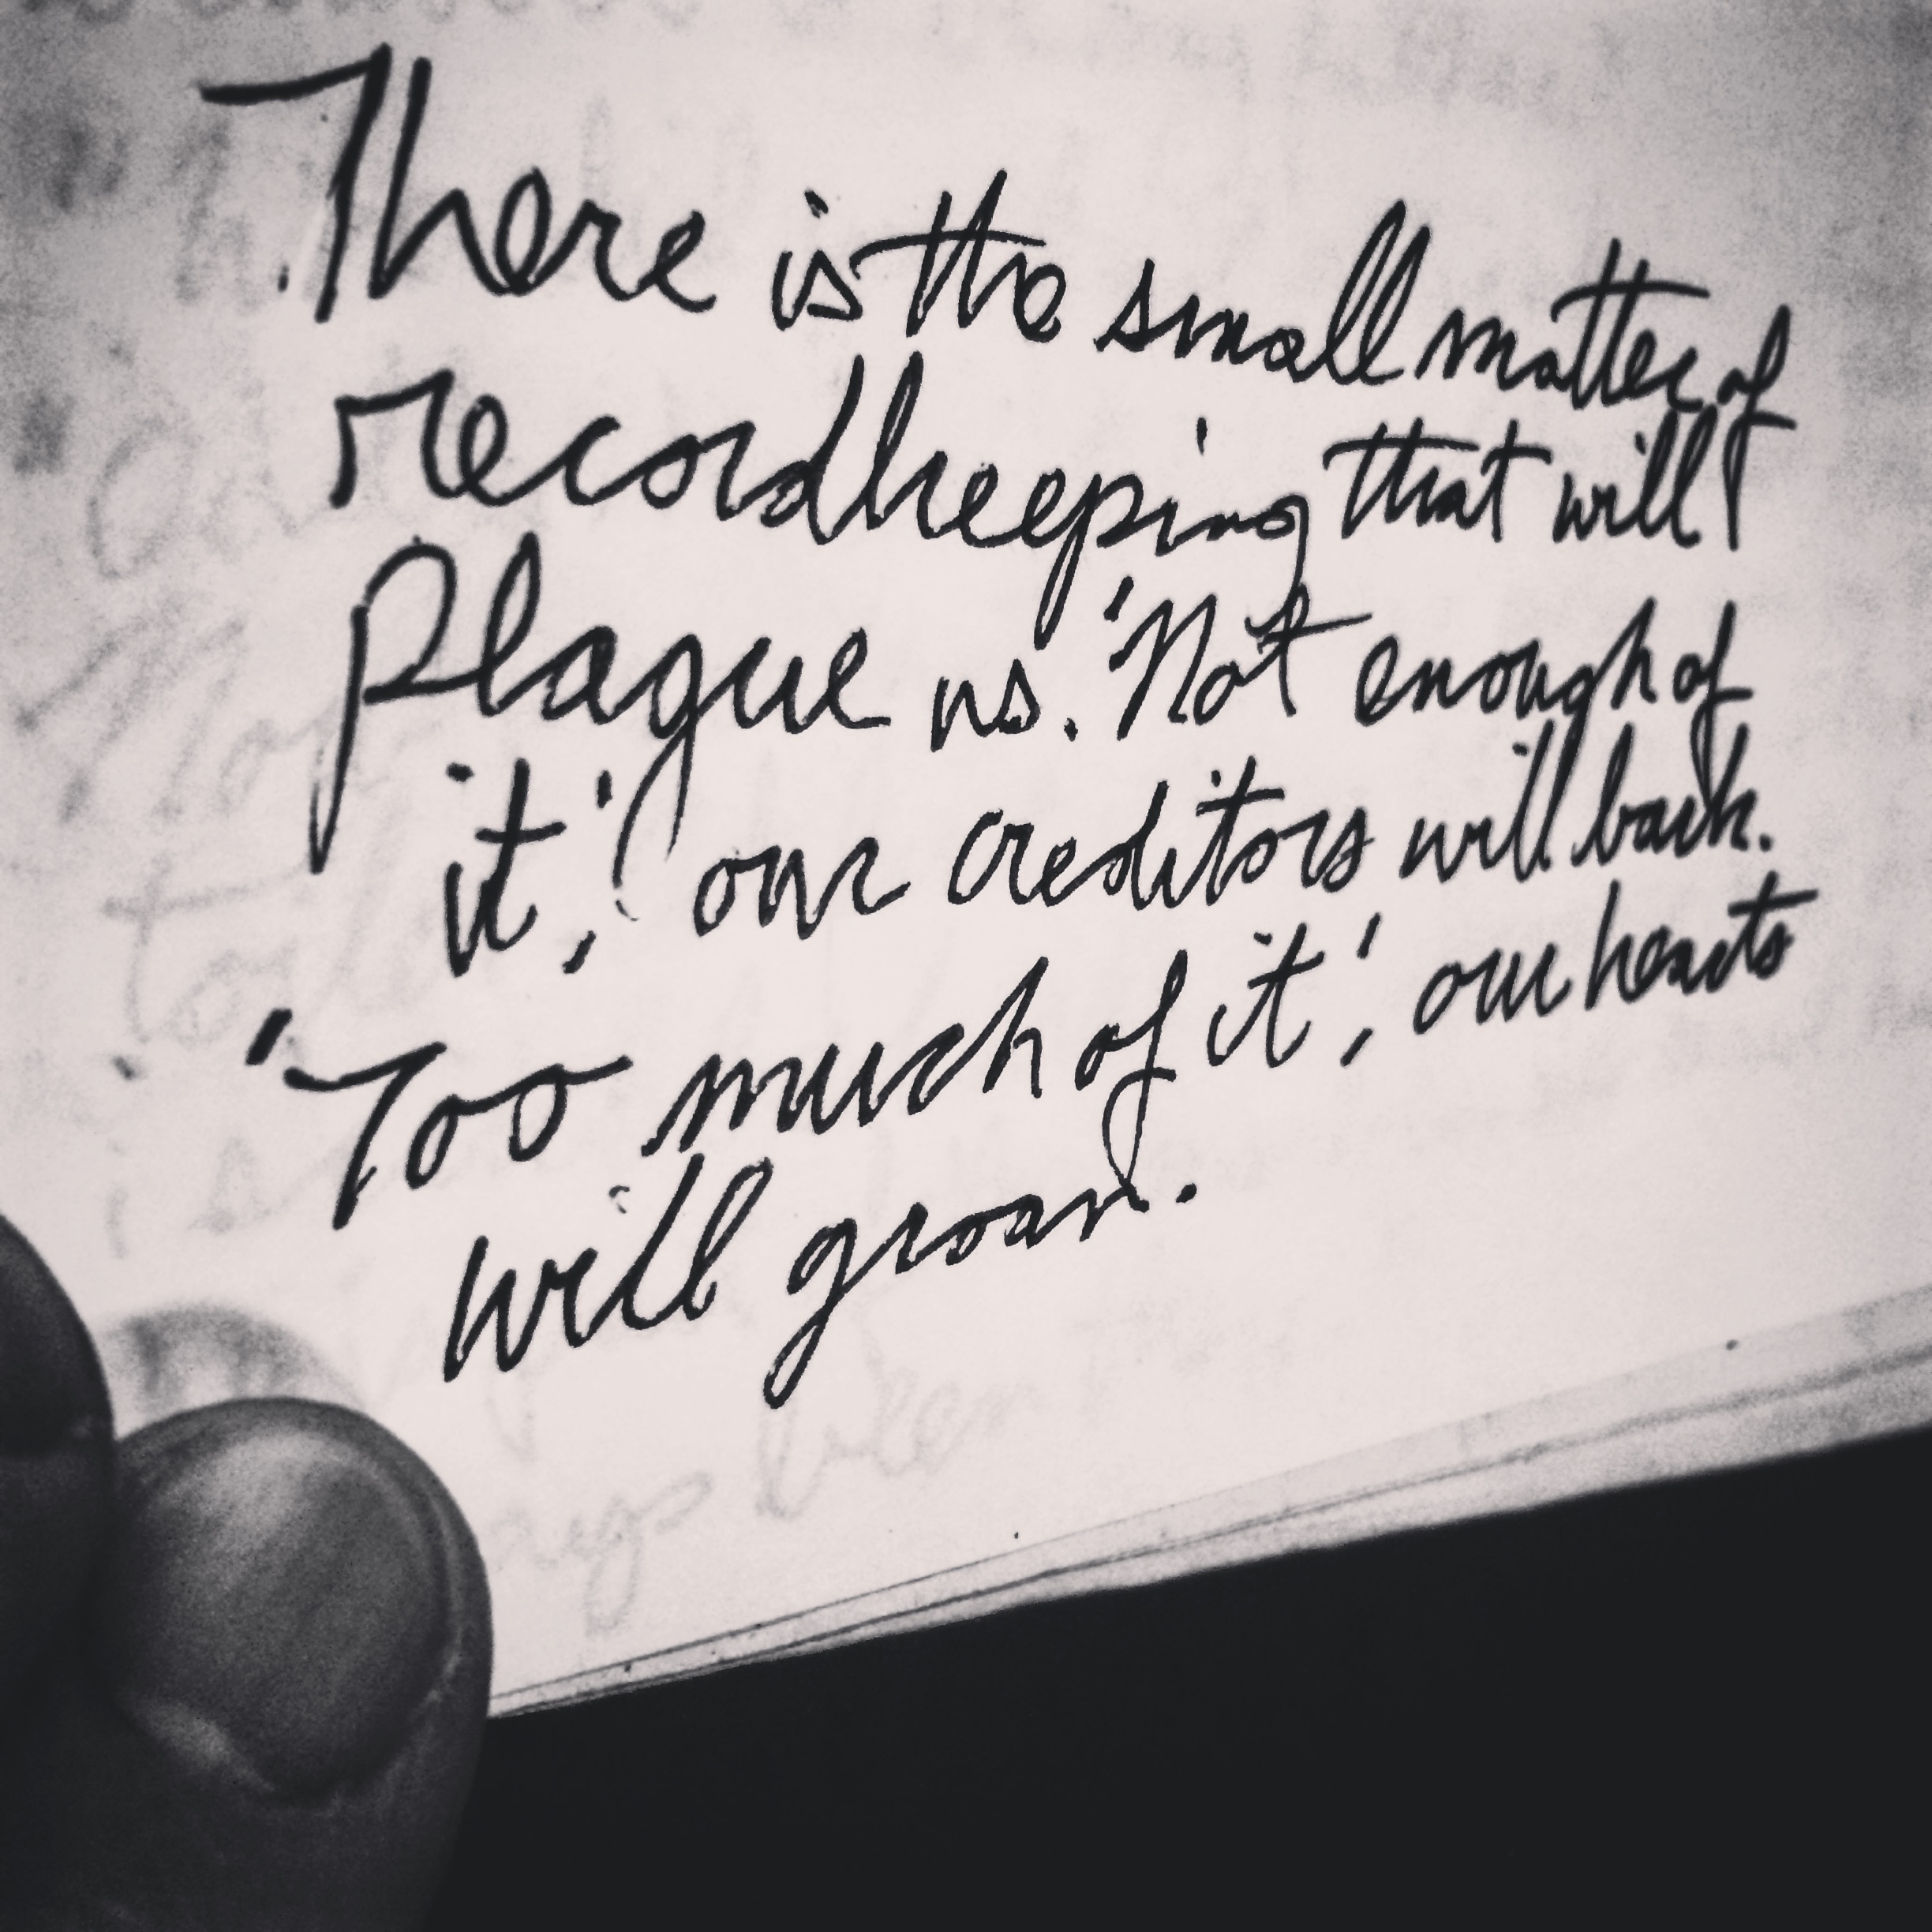 There is the small matter of
recordkeeping that will
plague us. 'Not enough of
it,' our creditors will bark.
'Too much of it', our hearts
will groan.